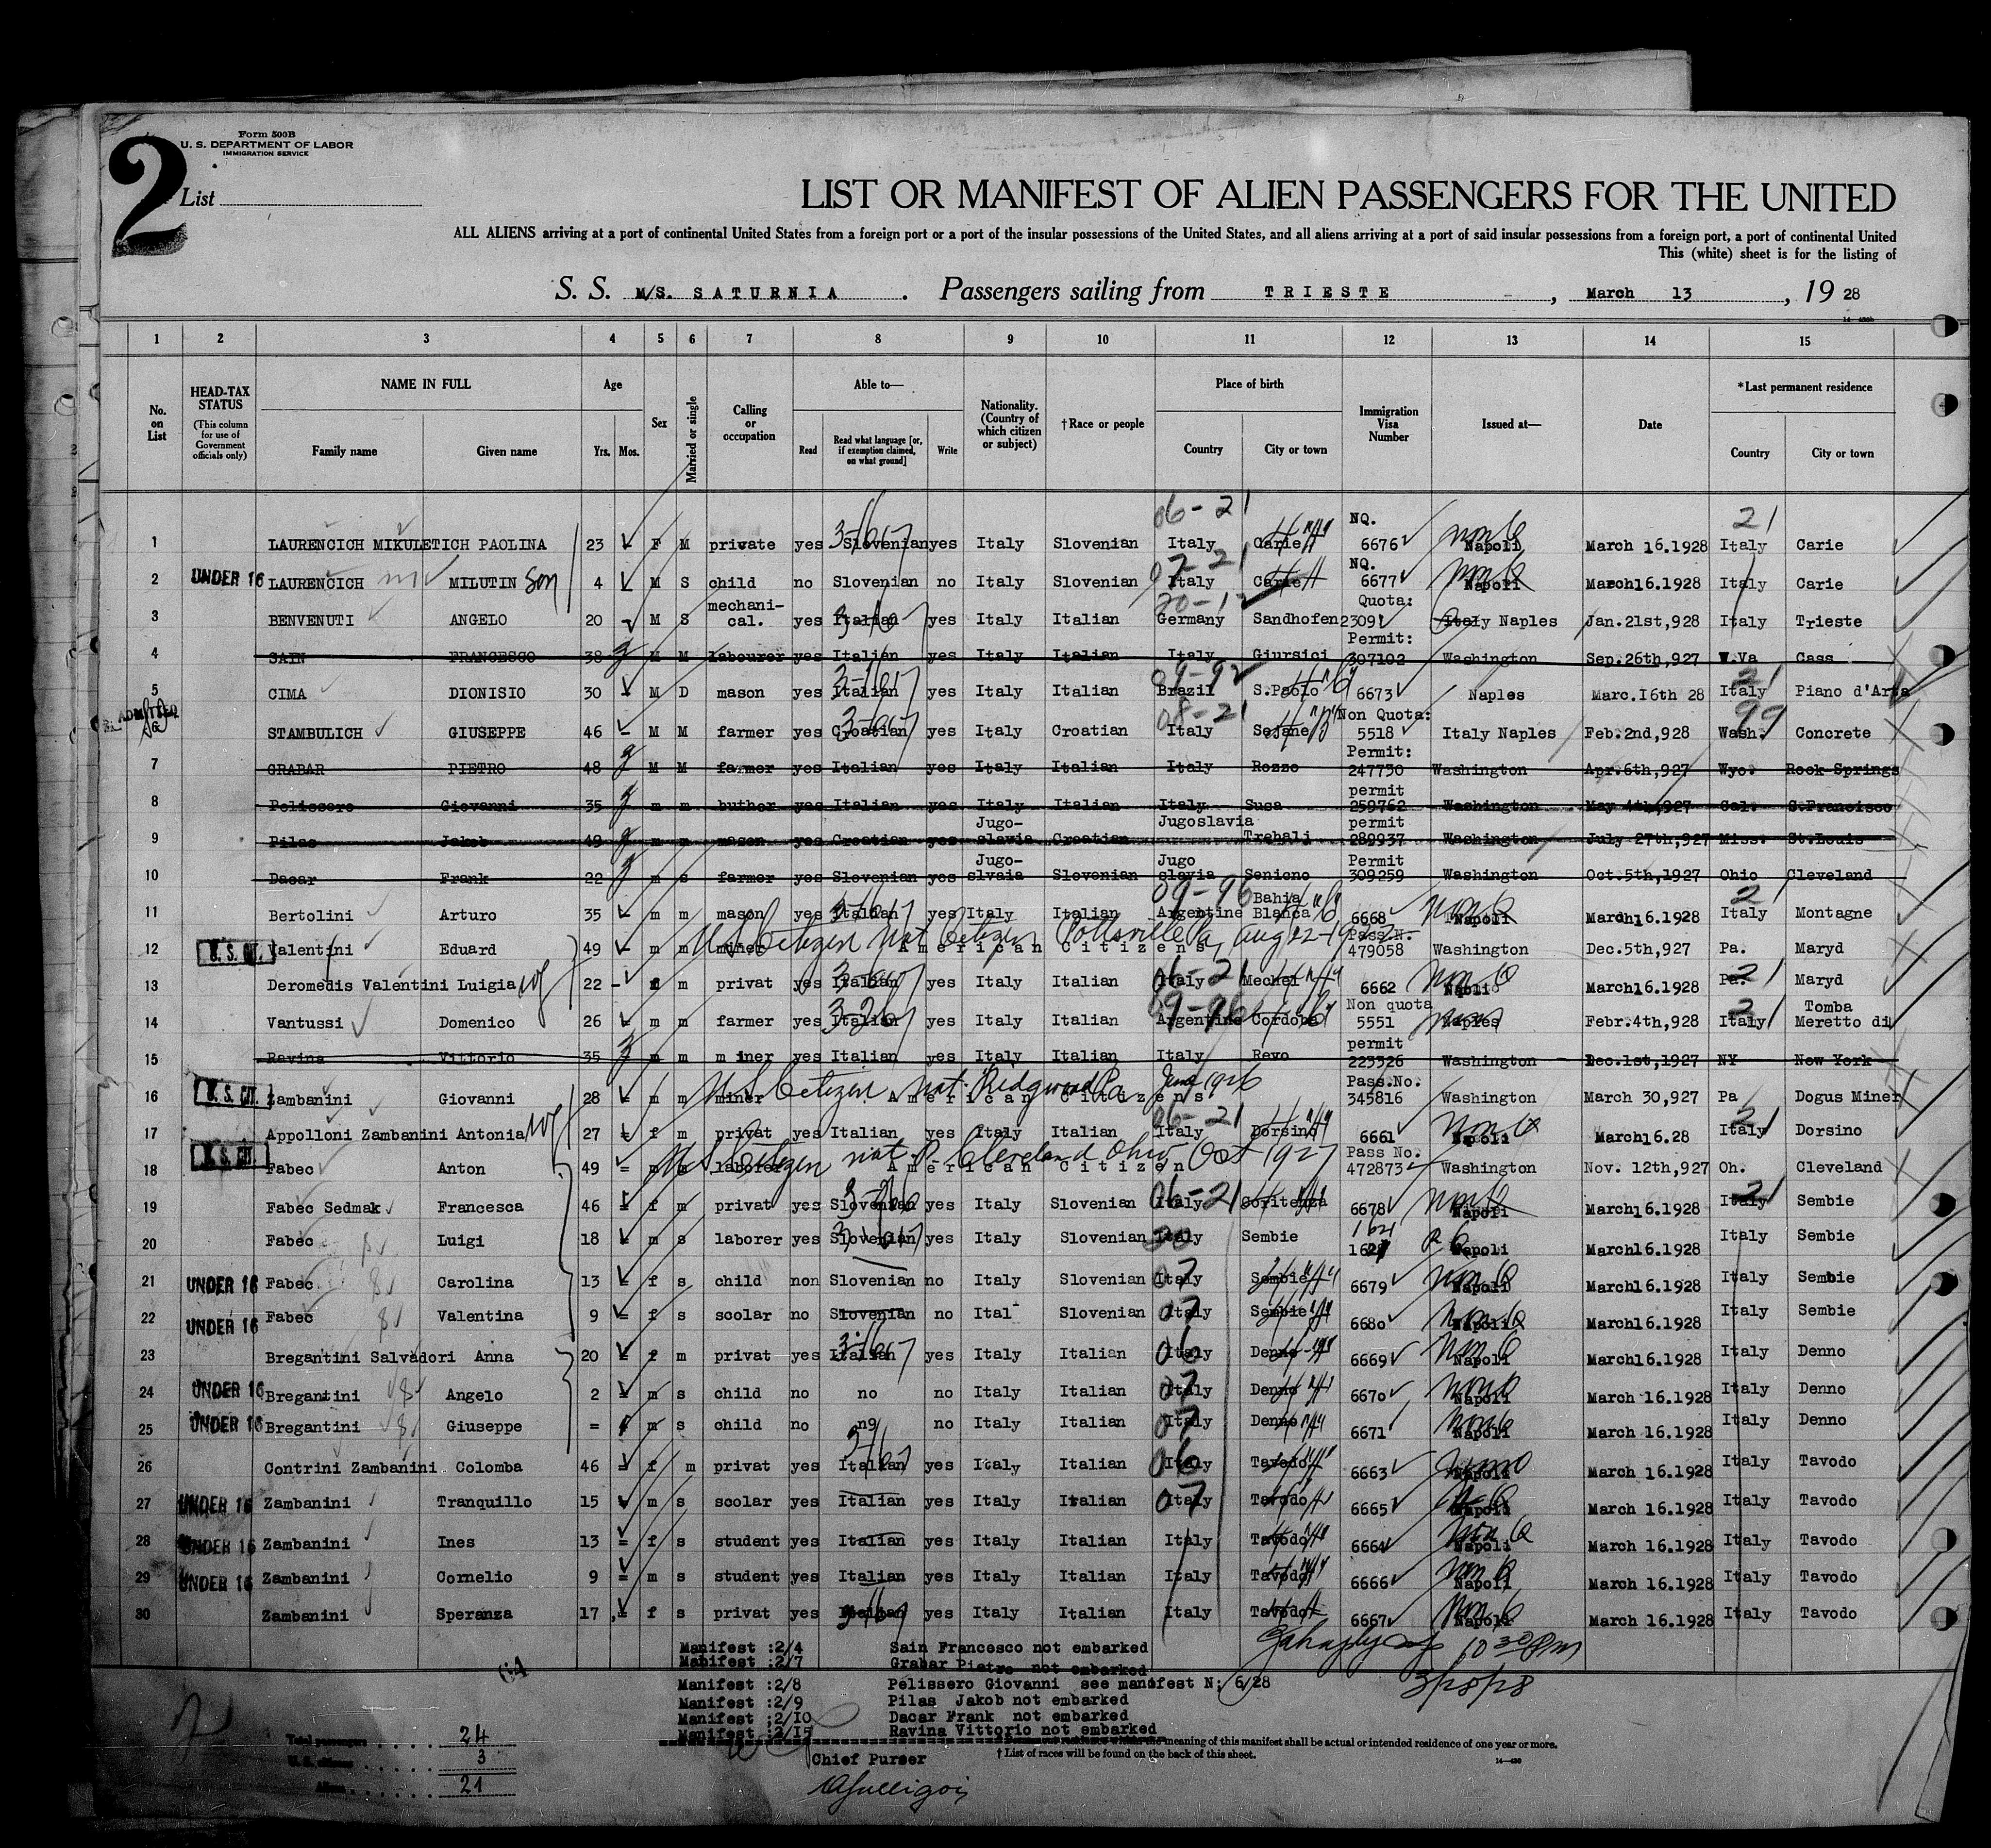 2
Form 500B
U. S. DEPARTMENT OF LABOR
IMMIGRATION SERVICE
List
LIST OR MANIFEST OF ALIEN PASSENGERS FOR THE UNITED
ALL ALIENS arriving at a port of continental United States from a foreign port or a port of the insular possessions of the United States, and all aliens arriving at a port of said insular possessions from a foreign port, a port of continental United
This (white) sheet is for the listing of
S. S. M/S. SATURNIA . Passengers sailing from TRIESTE , March 13 , 19 28
1 2 3 4 5 6 7 8 9 10 11 12 13 14 15
No. on List
HEAD-TAX STATUS (This column for use of Government officials only)
NAME IN FULL Family name Given name
Age Yrs. Mos.
Sex
Married or single
Calling or occupation
Able to— Read Read what language [or, if exemption claimed, on what ground] Write
Nationality. (Country of which citizen or subject)
†Race or people
Place of birth Country City or town
Immigration Visa Number
Issued at—
Date
*Last permanent residence Country City or town
1 LAURENCICH MIKULETICH PAOLINA 23 F M private yes Slovenian yes Italy Slovenian Italy Carie NQ. 6676 Napoli March 16.1928 Italy Carie
2 UNDER 16 LAURENCICH MILUTIN son 4 M S child no Slovenian no Italy Slovenian Italy Carie NQ. 6677 Napoli March16.1928 Italy Carie
3 BENVENUTI ANGELO 20 M S mechani-cal. yes Italian yes Italy Italian Germany Sandhofen Quota: 2309 Italy Naples Jan.21st,928 Italy Trieste
4 SAIN FRANCESCO 38 M M labourer yes Italian yes Italy Italian Italy Giursici Permit: 307102 Washington Sep.26th,927 W.Va Cass
5 CIMA DIONISIO 30 M D mason yes Italian yes Italy Italian Brazil S.Paolo 6673 Naples Marc.16th 28 Italy Piano d'Arta
ADMITTED STAMBULICH GIUSEPPE 46 M M farmer yes Croatian yes Italy Croatian Italy Sejane Non Quota: 5518 Italy Naples Feb.2nd,928 Wash. Concrete
7 GRABAR PIETRO 48 M M farmer yes Italian yes Italy Italian Italy Rozzo Permit: 247730 Washington Apr.6th,927 Wyo. Rock Springs
8 Pelissero Giovanni 35 m m buther yes Italian yes Italy Italian Italy Susa permit 259762 Washington May 4th,927 Cal. S.Francisco
9 Pilas Jakob 49 m m mason yes Croatian yes Jugo-slavia Croatian Jugoslavia Trehali permit 289937 Washington July 27th,927 Miss. St.Louis
10 Dacar Frank 22 m s farmer yes Slovenian yes Jugo-slvaia Slovenian Jugo slavia Senicno Permit 309259 Washington Oct.5th,1927 Ohio Cleveland
11 Bertolini Arturo 35 m m mason yes Italian yes Italy Italian Argentine Bahia Blanca 6668 Napoli March16.1928 Italy Montagne
12 U. S. CIT. Valentini Eduard 49 m m miner American Citizens US Citizen Nat Citizen Pottsville Pa, Aug 22-1922 Pass.N. 479058 Washington Dec.5th,927 Pa. Maryd
13 Deromedis Valentini Luigia wf 22 f m privat yes Italian yes Italy Italian Italy Mechel 6662 Napoli March16.1928 Pa. Maryd
14 Vantussi Domenico 26 m m farmer yes Italian yes Italy Italian Argentine Cordoba Non quota 5551 Naples Febr.4th,928 Italy Tomba Meretto di
15 Ravina Vittorio 35 m m miner yes Italian yes Italy Italian Italy Revo permit 223326 Washington Dec.1st,1927 NY New York
16 U. S. CIT. Zambanini Giovanni 28 m m miner American Citizens US Citizen nat. Ridgwood Pa June 1926 Pass.No. 345816 Washington March 30,927 Pa Dogus Miner
17 Appolloni Zambanini Antonia wf 27 f m privat yes Italian yes Italy Italian Italy Dorsino 6661 Napoli March16.28 Italy Dorsino
18 U. S. CIT. Fabec Anton 49 m m laborer American Citizen US Citizen nat Cleveland Ohio Oct 1927 Pass No. 472873 Washington Nov. 12th,927 Oh. Cleveland
19 Fabec Sedmak Francesca 46 f m privat yes Slovenian yes Italy Slovenian Italy Goritenza 6678 Napoli March16.1928 Italy Sembie
20 Fabec Luigi 18 m s laborer yes Slovenian yes Italy Slovenian Italy Sembie 1621 Napoli March16.1928 Italy Sembie
21 UNDER 16 Fabec Carolina 13 f s child non Slovenian no Italy Slovenian Italy Sembie 6679 Napoli March16.1928 Italy Sembie
22 UNDER 16 Fabec Valentina 9 f s scolar no Slovenian no Ital Slovenian Italy Sembie 6680 Napoli March16.1928 Italy Sembie
23 Bregantini Salvadori Anna 20 f m privat yes Italian yes Italy Italian Italy Denno 6669 Napoli March16.1928 Italy Denno
24 UNDER 16 Bregantini Angelo 2 m s child no no no Italy Italian Italy Denno 6670 Napoli March 16.1928 Italy Denno
25 UNDER 16 Bregantini Giuseppe = m s child no no no Italy Italian Italy Denno 6671 Napoli March 16.1928 Italy Denno
26 Contrini Zambanini Colomba 46 f m privat yes Italian yes Italy Italian Italy Tavodo 6663 Napoli March 16.1928 Italy Tavodo
27 UNDER 16 Zambanini Tranquillo 15 m s scolar yes Italian yes Italy Italian Italy Tavodo 6665 Napoli March 16.1928 Italy Tavodo
28 UNDER 16 Zambanini Ines 13 f s student yes Italian yes Italy Italian Italy Tavodo 6664 Napoli March 16.1928 Italy Tavodo
29 UNDER 16 Zambanini Cornelio 9 m s student yes Italian yes Italy Italian Italy Tavodo 6666 Napoli March 16.1928 Italy Tavodo
30 Zambanini Speranza 17 f s privat yes Italian yes Italy Italian Italy Tavodo 6667 Napoli March 16.1928 Italy Tavodo
Manifest :2/4 Sain Francesco not embarked
Manifest :2/7 Grabar Pietro not embarked
Manifest :2/8 Pelissero Giovanni see manifest N: 6/28
Manifest :2/9 Pilas Jakob not embarked
Manifest :2/10 Dacar Frank not embarked
Manifest :2/15 Ravina Vittorio not embarked
10 30 PM
3/28/28
Total passengers 24
U. S. citizens 3
Aliens 21
meaning of this manifest shall be actual or intended residence of one year or more.
† List of races will be found on the back of this sheet.
Chief Purser